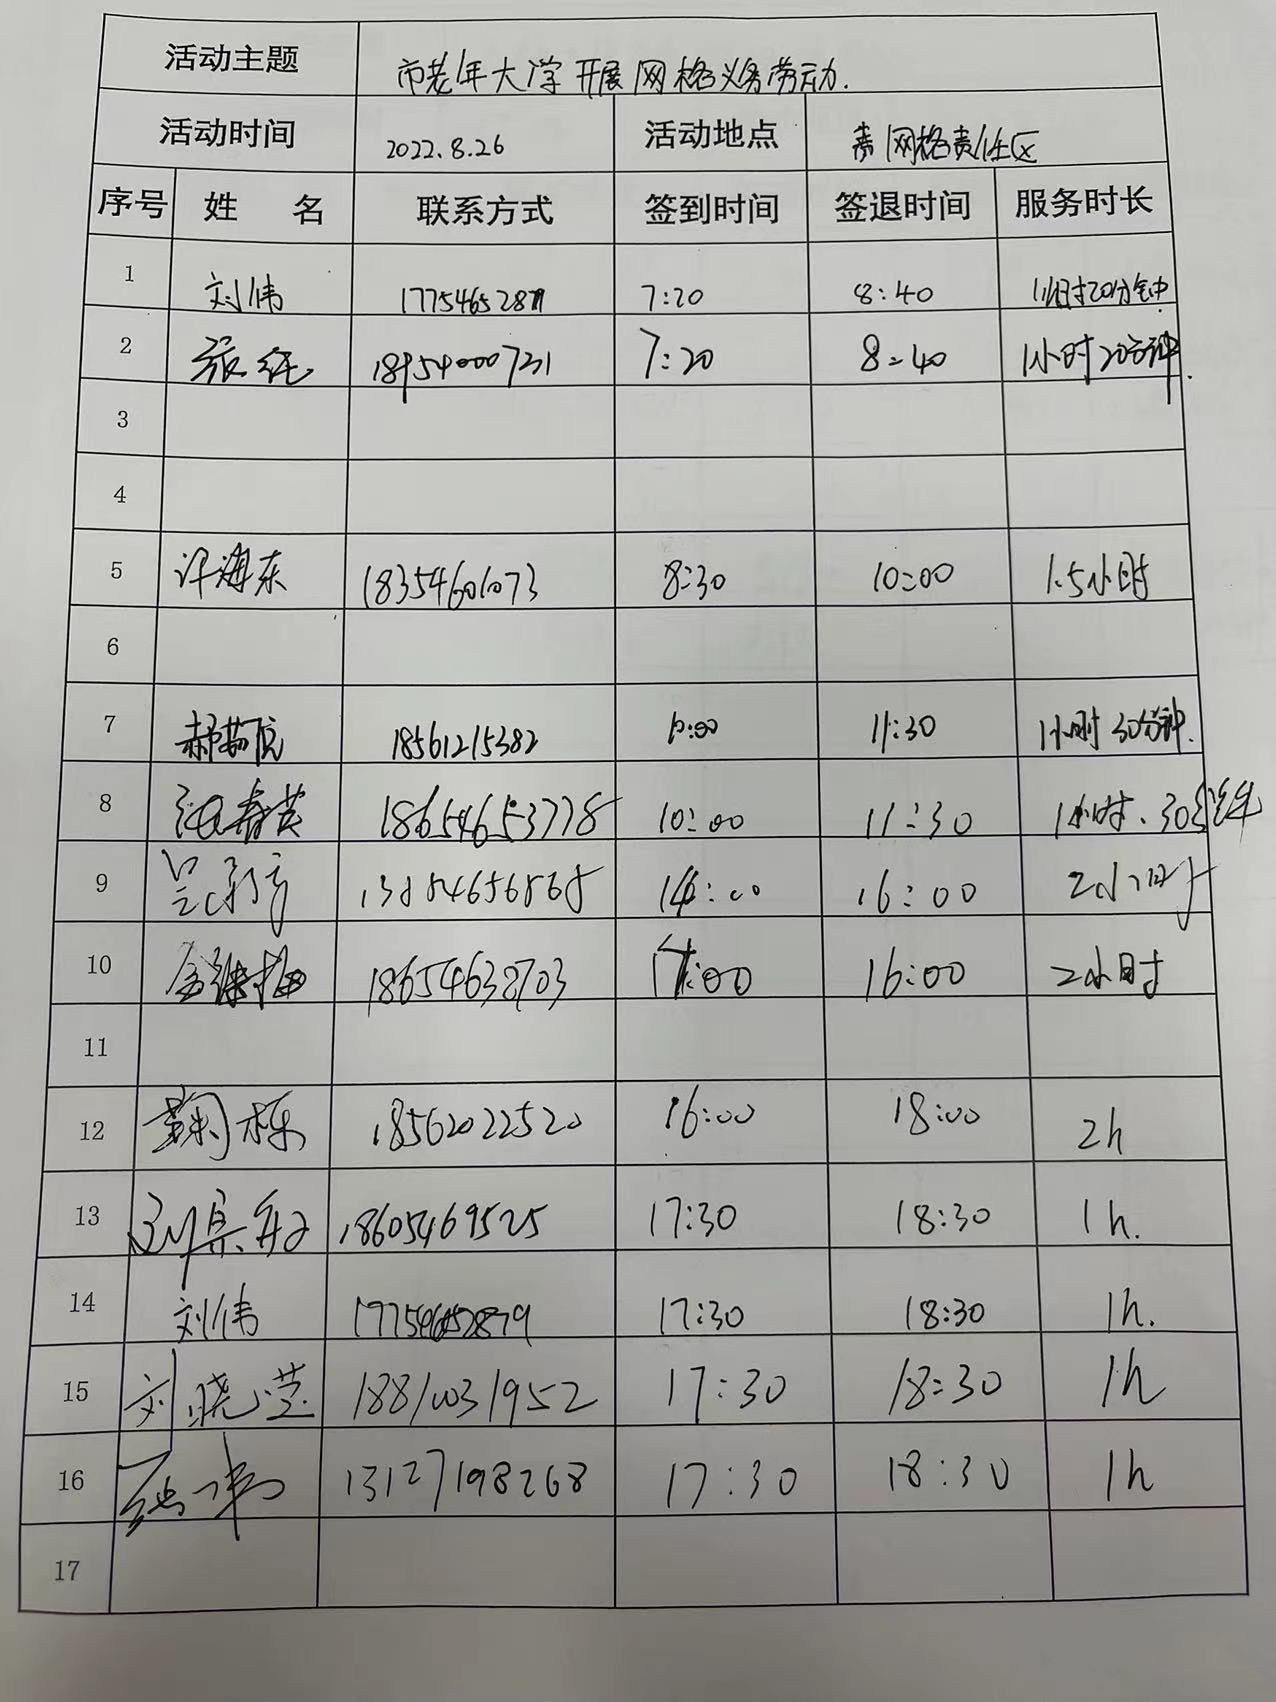 活动主题 市老年大学开展网格义务劳动.
活动时间 2022.8.26 活动地点 网格责任区
序号 姓 名 联系方式 签到时间 签退时间 服务时长
1 刘伟 7:20 8:40 1小时20分钟
2 7:20 8:40 1小时20分钟.
3
4
5 许海东 18354601073 8:30 10:00 1.5小时
6
7 18561215382 10:00 11:30 1小时30分钟.
8 张春英 18654653778 10:00 11:30 1小时、30分钟
9 14:00 16:00 2小时
10 18654632703 16:00 2小时
11
12 鞠栋 18562022520 16:00 18:00 2h
13 18605469525 17:30 18:30 1h.
14 刘伟 17:30 18:30 1h.
15 刘晓莹 18810031952 17:30 18:30 1h
16 13127198268 17:30 18:30 1h
17